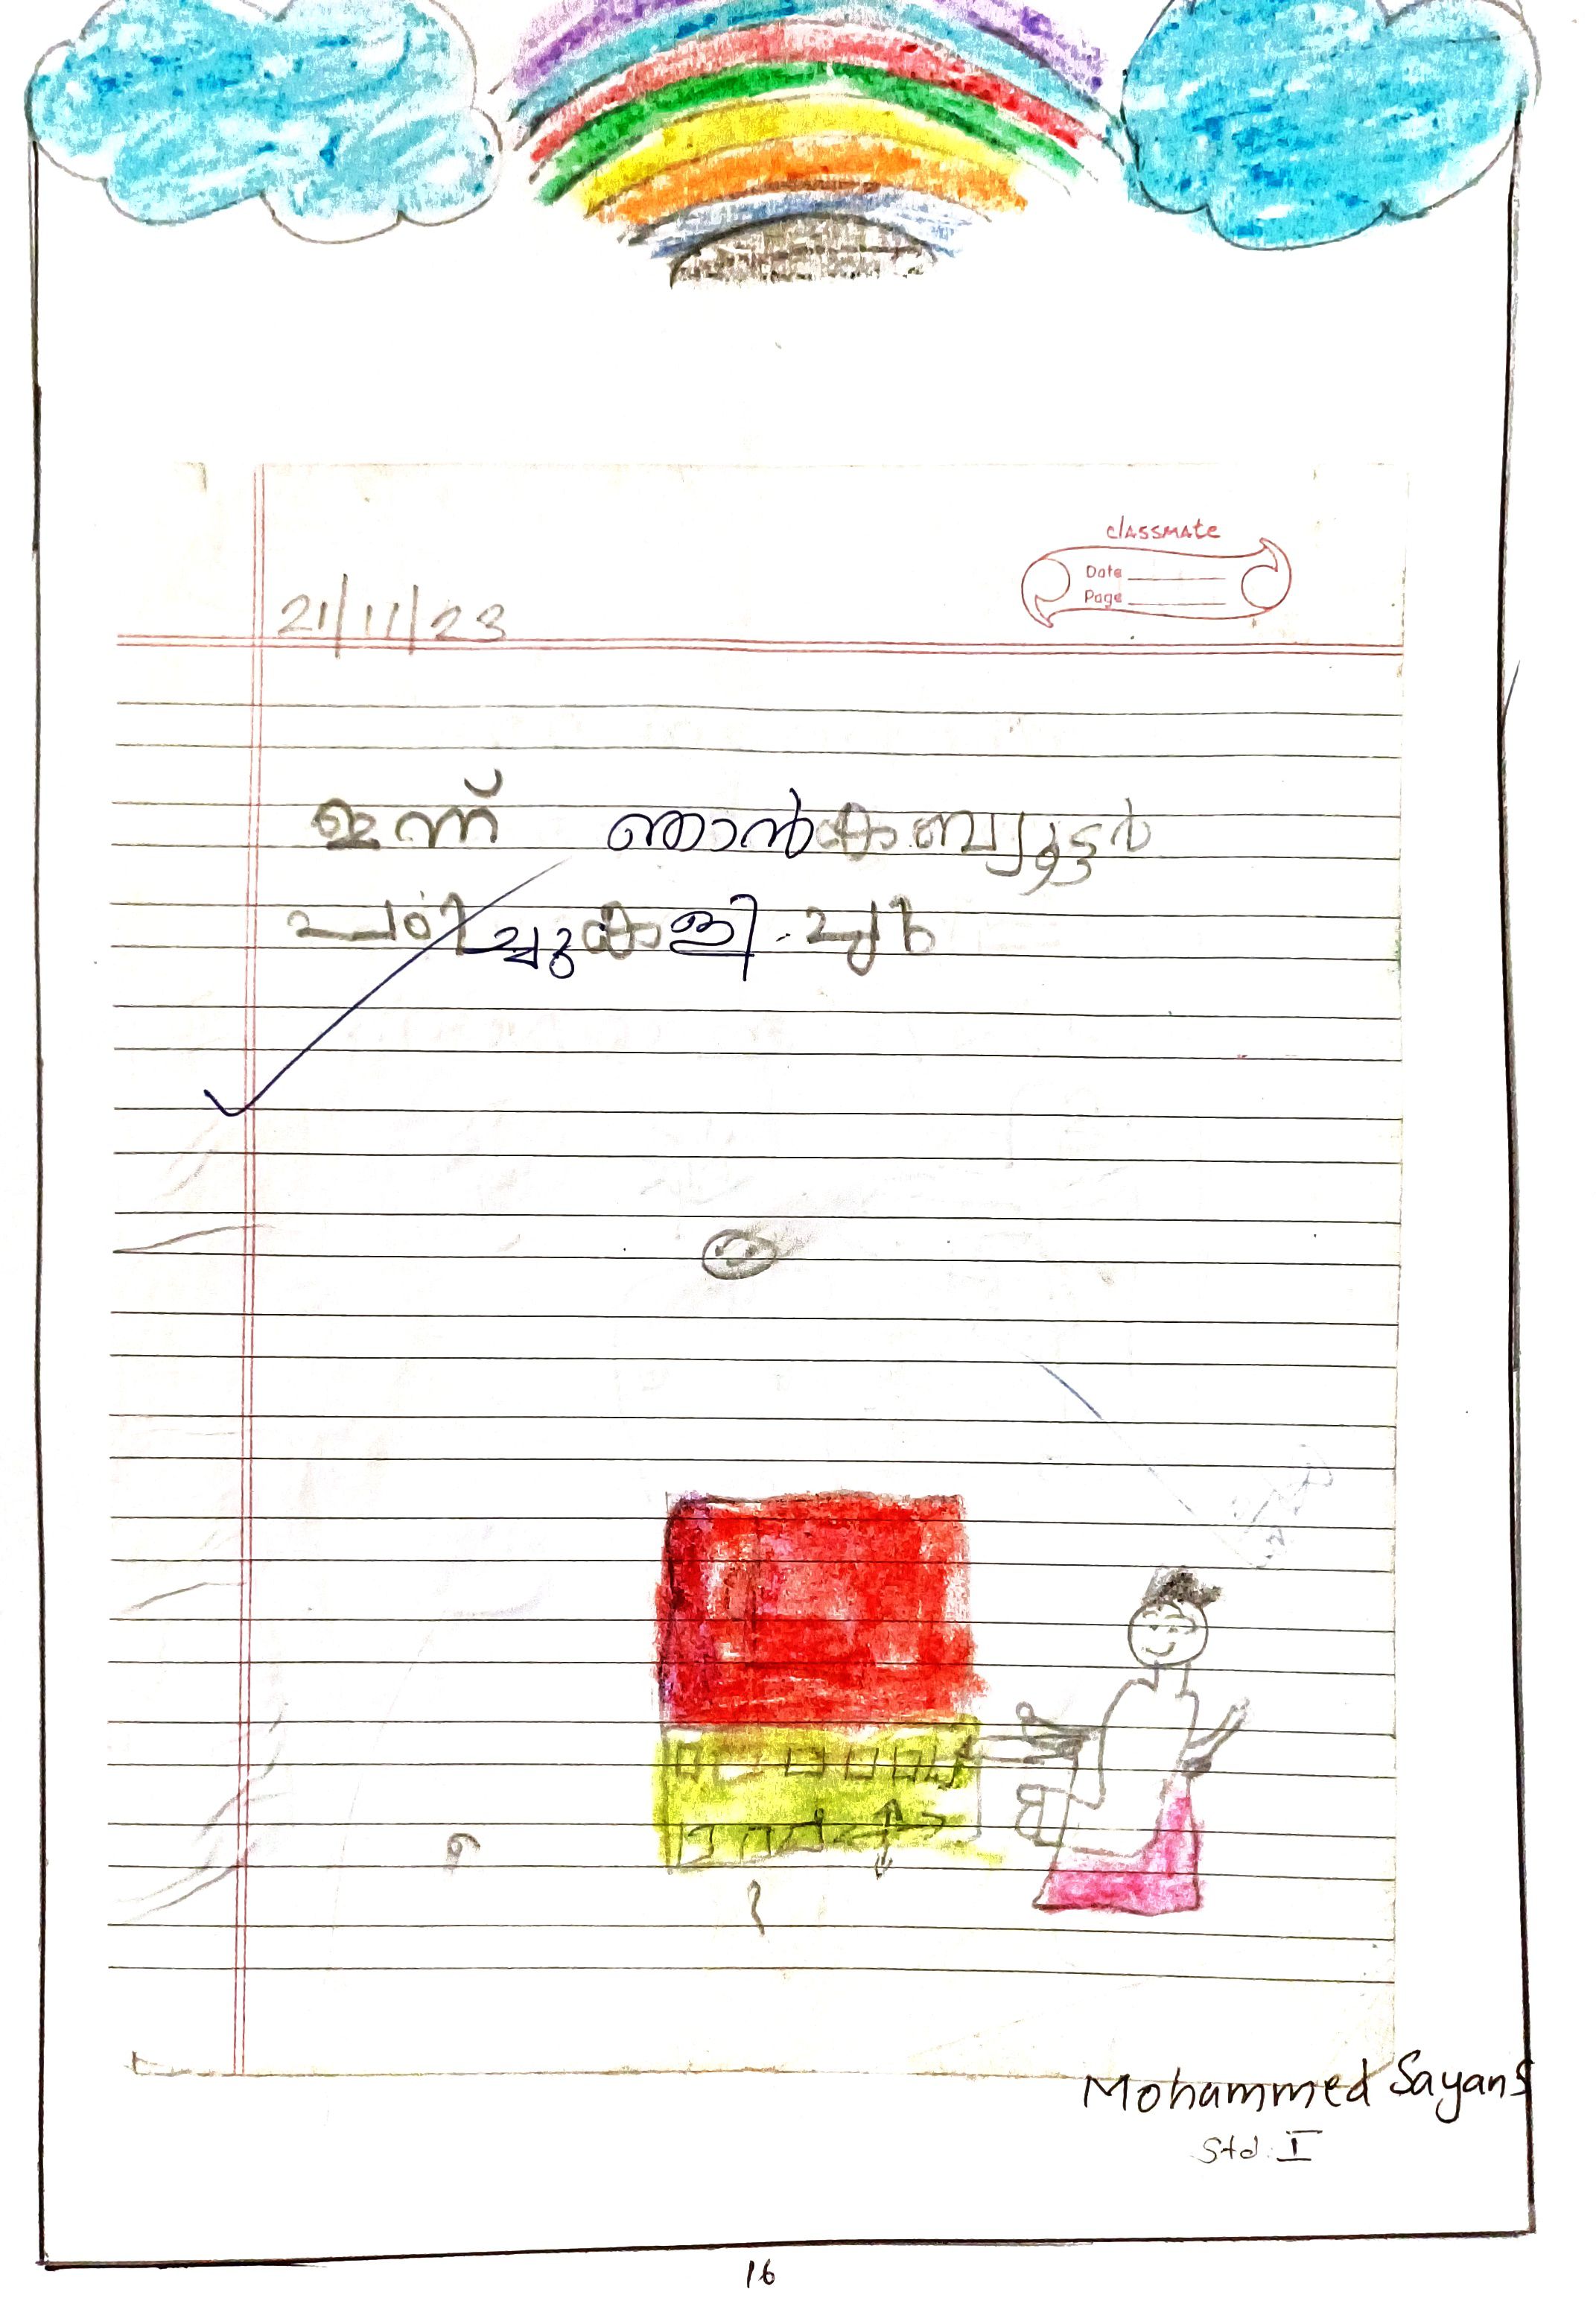 classmate
Date
Page
21/11/23
ഇന്ന് ഞാൻ കബ്യൂട്ടർ
പഠിച്ചു കളി
Mohammed Sayan S
Std: I
16